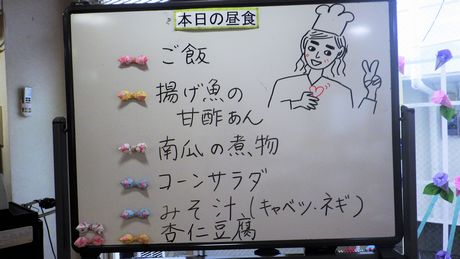 本日の昼食
ご飯
揚げ魚の
甘酢あん
南瓜の煮物
コーンサラダ
みそ汁(キャベツ・ネギ)
杏仁豆腐